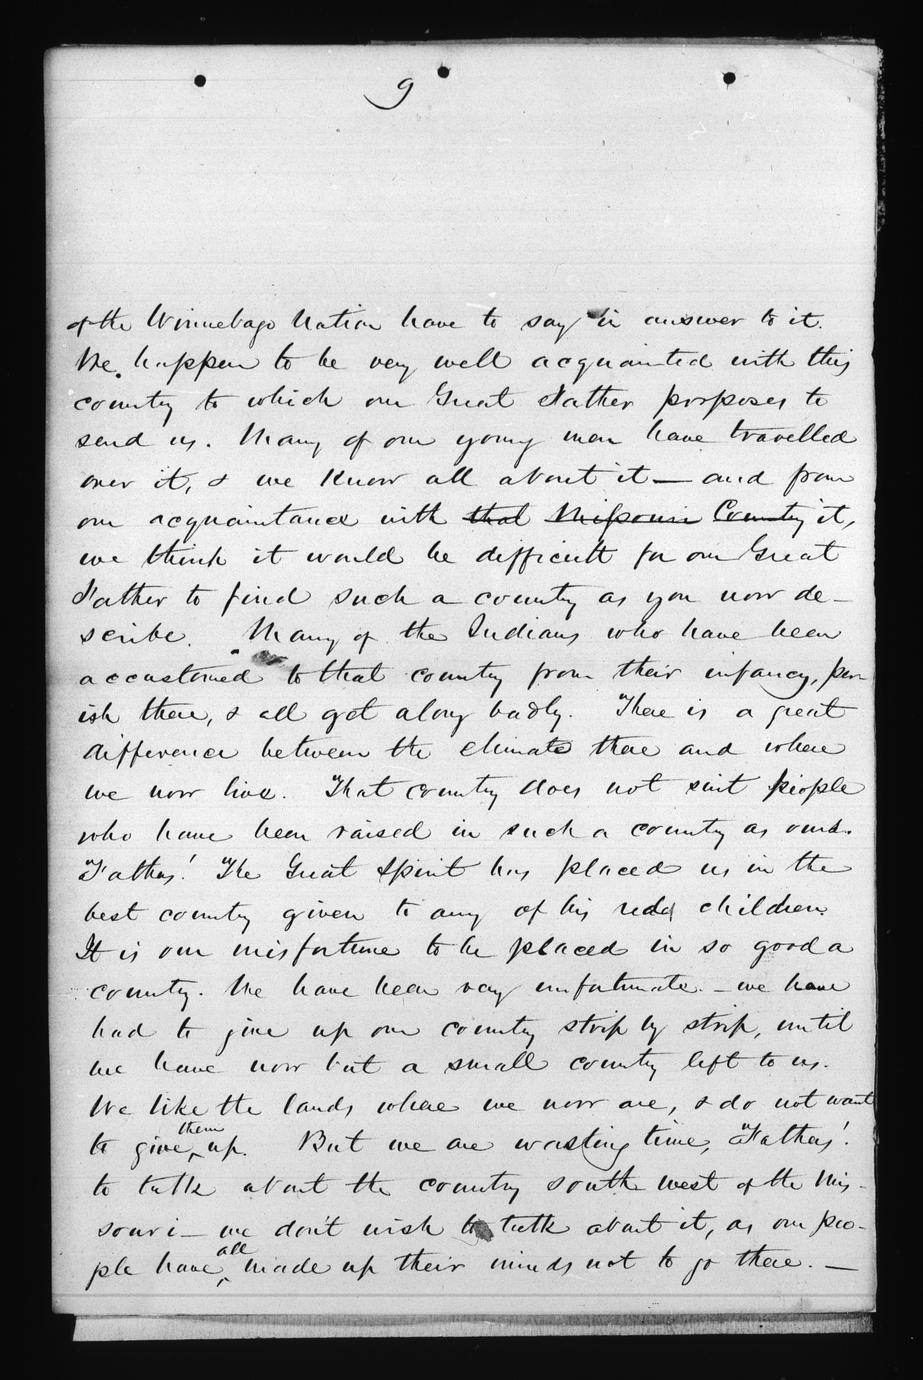 9
of the Winnebago Nation have to say in answer to it.
We happen to be very well acquainted with this
country to which our Great Father proposes to
send us. Many of our young men have travelled
over it, & we know all about it — and from
our acquaintance with that Missouri Country it,
we think it would be difficult for our Great
Father to find such a country as you now de-
scribe. Many of the Indians who have been
accustomed to that country from their infancy, per-
ish there, & all get along badly. There is a great
difference between the climate there and where
we now live. That country does not suit people
who have been raised in such a country as ours.
Fathers! The Great Spirit has placed us in the
best country given to any of his red children.
It is our misfortune to be placed in so good a
country. We have been very unfortunate. — we have
had to give up our country strip by strip, until
we have now but a small country left to us.
We like the lands where we now are, & do not want
to give them up. But we are wasting time, Fathers!
to talk about the country south west of the Mis-
souri — we don't wish to talk about it, as our peo-
ple have all made up their minds not to go there. —